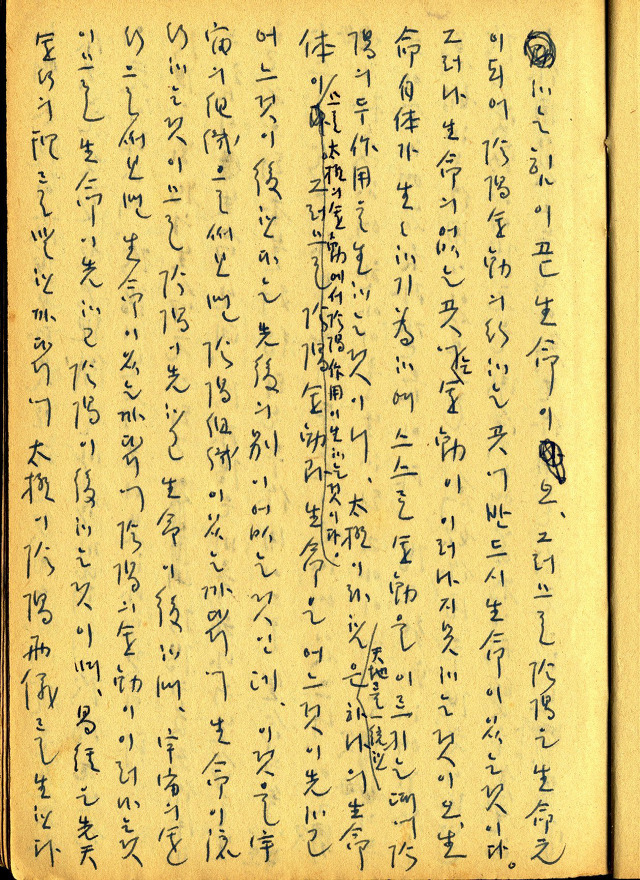 하는 힘이 곧 生命이오, 그러므로 陰陽은 生命元
이 되어 陰陽運動의 行하는 곳에 반드시 生命이 있는 것이다.
그러나 生命의 없는 곳에는 運動이 이러나지 못하는 것이오, 生
命自体가 生生하기 爲하여 스스로 運動을 이르키는 때에 陰
陽의 두 作用을 生하는 것이니, 太極이라 함은 天地를 一統한 하나의 生命
体이므로 太極의 運動에서 陰陽作用이 生하는 것이다. 그러므로 陰陽運動과 生命은 어느것이 先하고
어느것이 後한다는 先後의 別이 없는 것인데, 이것을 宇
宙의 組織으로써 보면 陰陽組織이 있는 까닭에 生命이 流
行하는 것이므로 陰陽이 先하고 生命이 後하며, 宇宙의 運
行으로써 보면 生命이 있는 까닭에 陰陽의 運動이 이러나는 것
이므로 生命이 先하고 陰陽이 後하는 것이며, 易經은 先天
運行의 理를 말한 까닭에 太極이 陰陽兩儀를 生한다